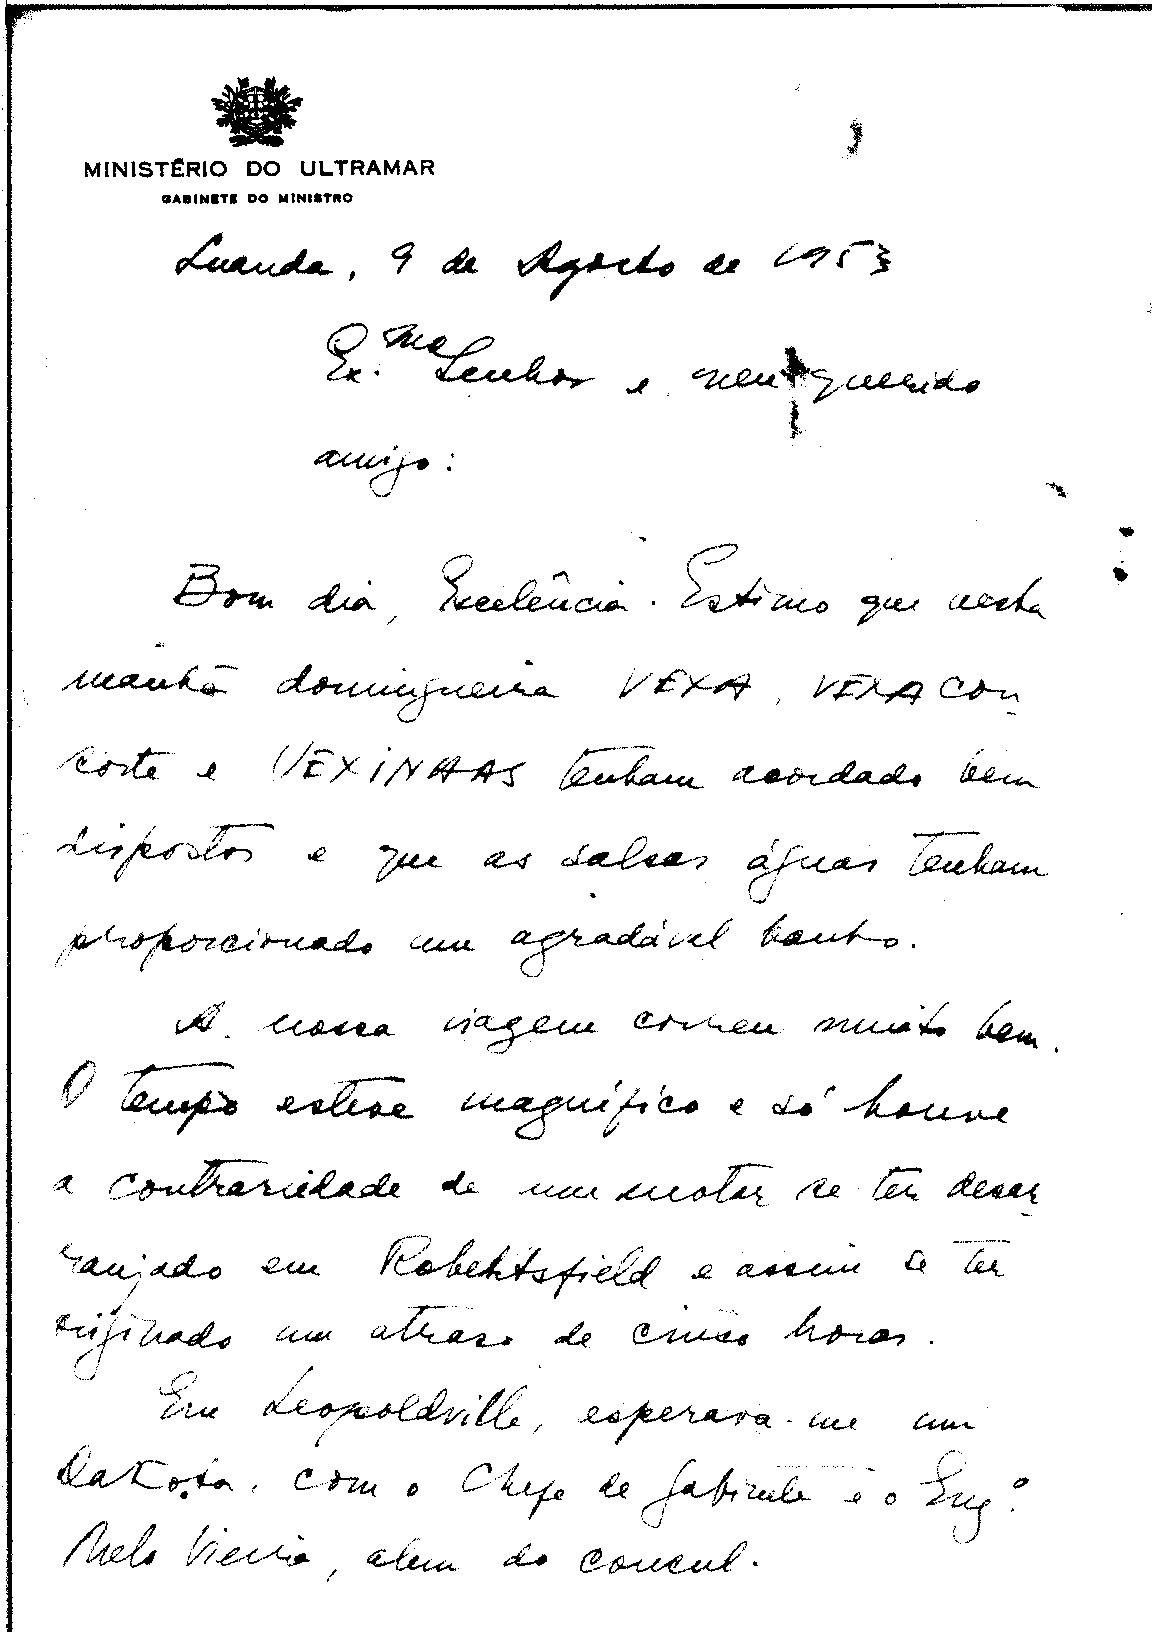 MINISTÉRIO DO ULTRAMAR
GABINETE DO MINISTRO
Luanda, 9 de Agosto de 1953
Ex.mo Senhor e meu querido
amigo:
Bom dia, Excelência. Estimo que nesta
manhã domingueira VEXA, VEXA con-
sorte e VEXINHAS tenham acordado bem
dispostos e que as salsas águas tenham
proporcionado um agradável banho.
A nossa viagem correu muito bem.
O tempo esteve magnífico e só houve
a contrariedade de um motor se ter desar-
ranjado em Robertsfield e assim se ter
originado um atraso de cinco horas.
Em Leopoldville, esperava-me um
Dakota, com o Chefe de Gabinete e o Eng.º
Melo Vieira, alem do consul.